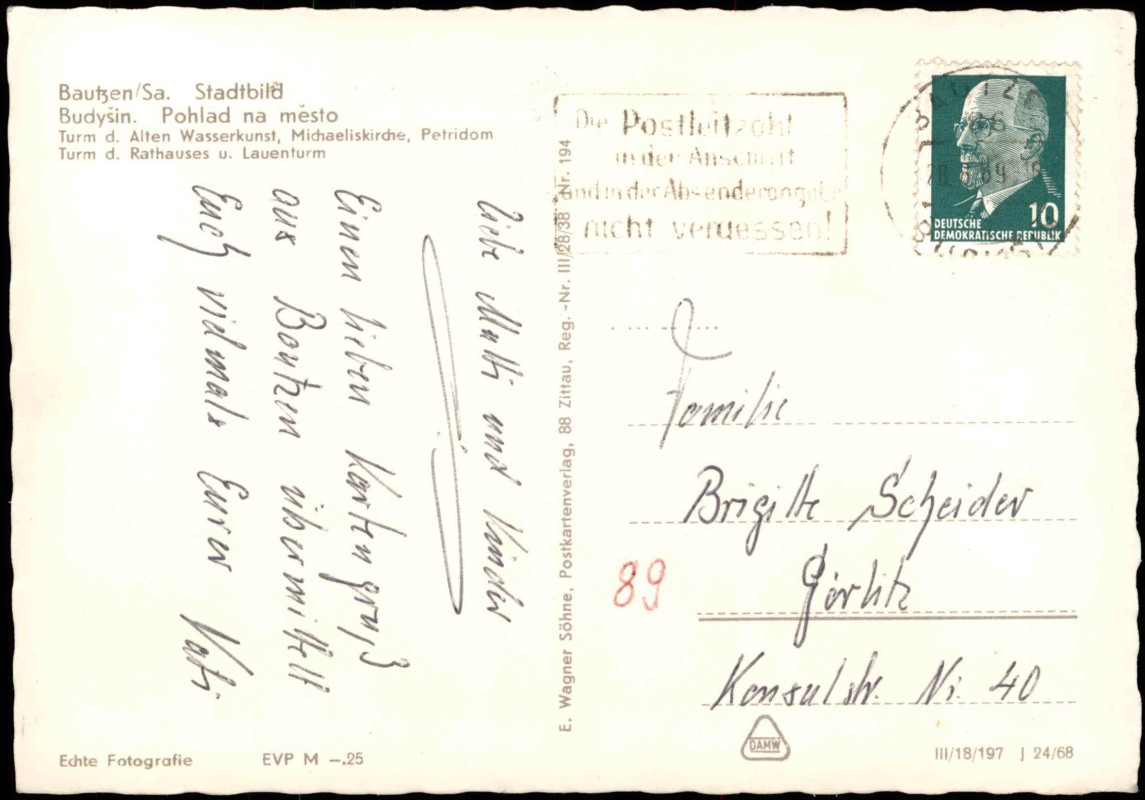 Bautzen/Sa. Stadtbild
Budyšin. Pohlad na město
Turm d. Alten Wasserkunst, Michaeliskirche, Petridom
Turm d. Rathauses u. Lauenturm
Liebe Mutti und Kinder
Einen lieben Kartengruß
aus Bautzen übermittelt
Euch vielmals Eurer Vati
Echte Fotografie
EVP M –.25
E. Wagner Söhne, Postkartenverlag, 88 Zittau, Reg.-Nr. III/28/38 Nr. 194
Die Postleitzahl
in der Anschrift
und in der Absenderangabe
nicht vergessen!
BAUTZEN
10
DEUTSCHE
DEMOKRATISCHE REPUBLIK
Familie
Brigitte Scheider
89
Görlitz
Konsulstr. Nr. 40
DAMW
III/18/197 J 24/68